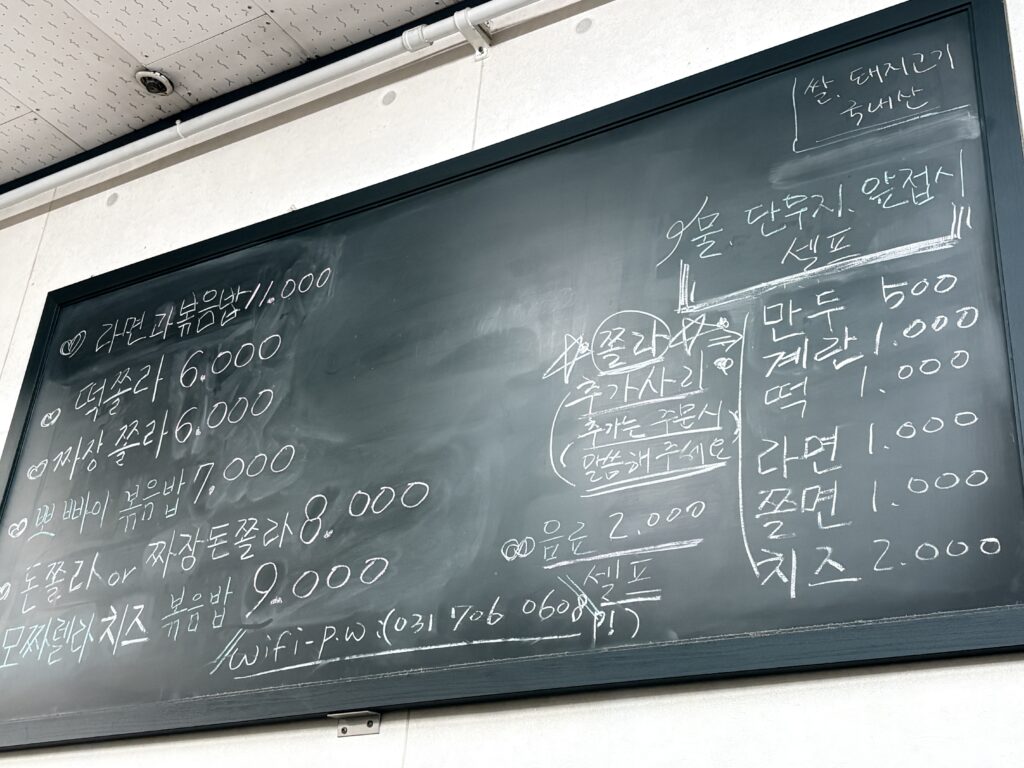 쌀. 돼지고기
국내산
물. 단무지. 앞접시
셀프
라면과볶음밥 11.000
떡쫄라 6.000
짜장쫄라 6.000
뽀빠이 볶음밥 7.000
돈쫄라 or 짜장돈쫄라 8.000
모짜렐라치즈 볶음밥 9.000
wifi-p.w:(031 706 0608!)
쫄라
추가사리
추가는 주문시
말씀해주세요
만두 500
계란 1.000
떡 1.000
라면 1.000
쫄면 1.000
치즈 2.000
음료 2.000
셀프